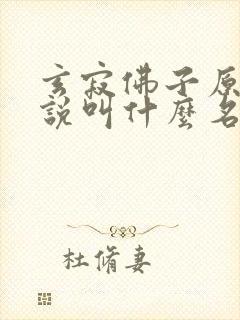 玄寂佛子原
說叫什麼名
杜脩妻